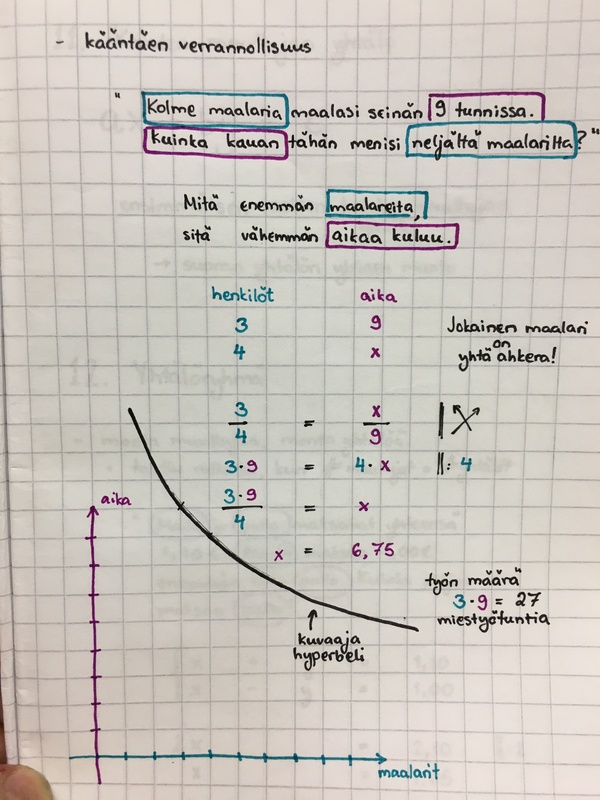 - kääntäen verrannollisuus
" Kolme maalaria maalasi seinän 9 tunnissa.
Kuinka kauan tähän menisi neljältä maalarilta?"
Mitä enemmän maalareita,
sitä vähemmän aikaa kuluu.
henkilöt aika
3 9
4 x
Jokainen maalari
on
yhtä ahkera!
3/4 = x/9
3·9 = 4·x ||: 4
3·9/4 = x
x = 6,75
työn määrä
3·9 = 27
miestyötuntia
aika
↑
kuvaaja
hyperbeli
maalarit